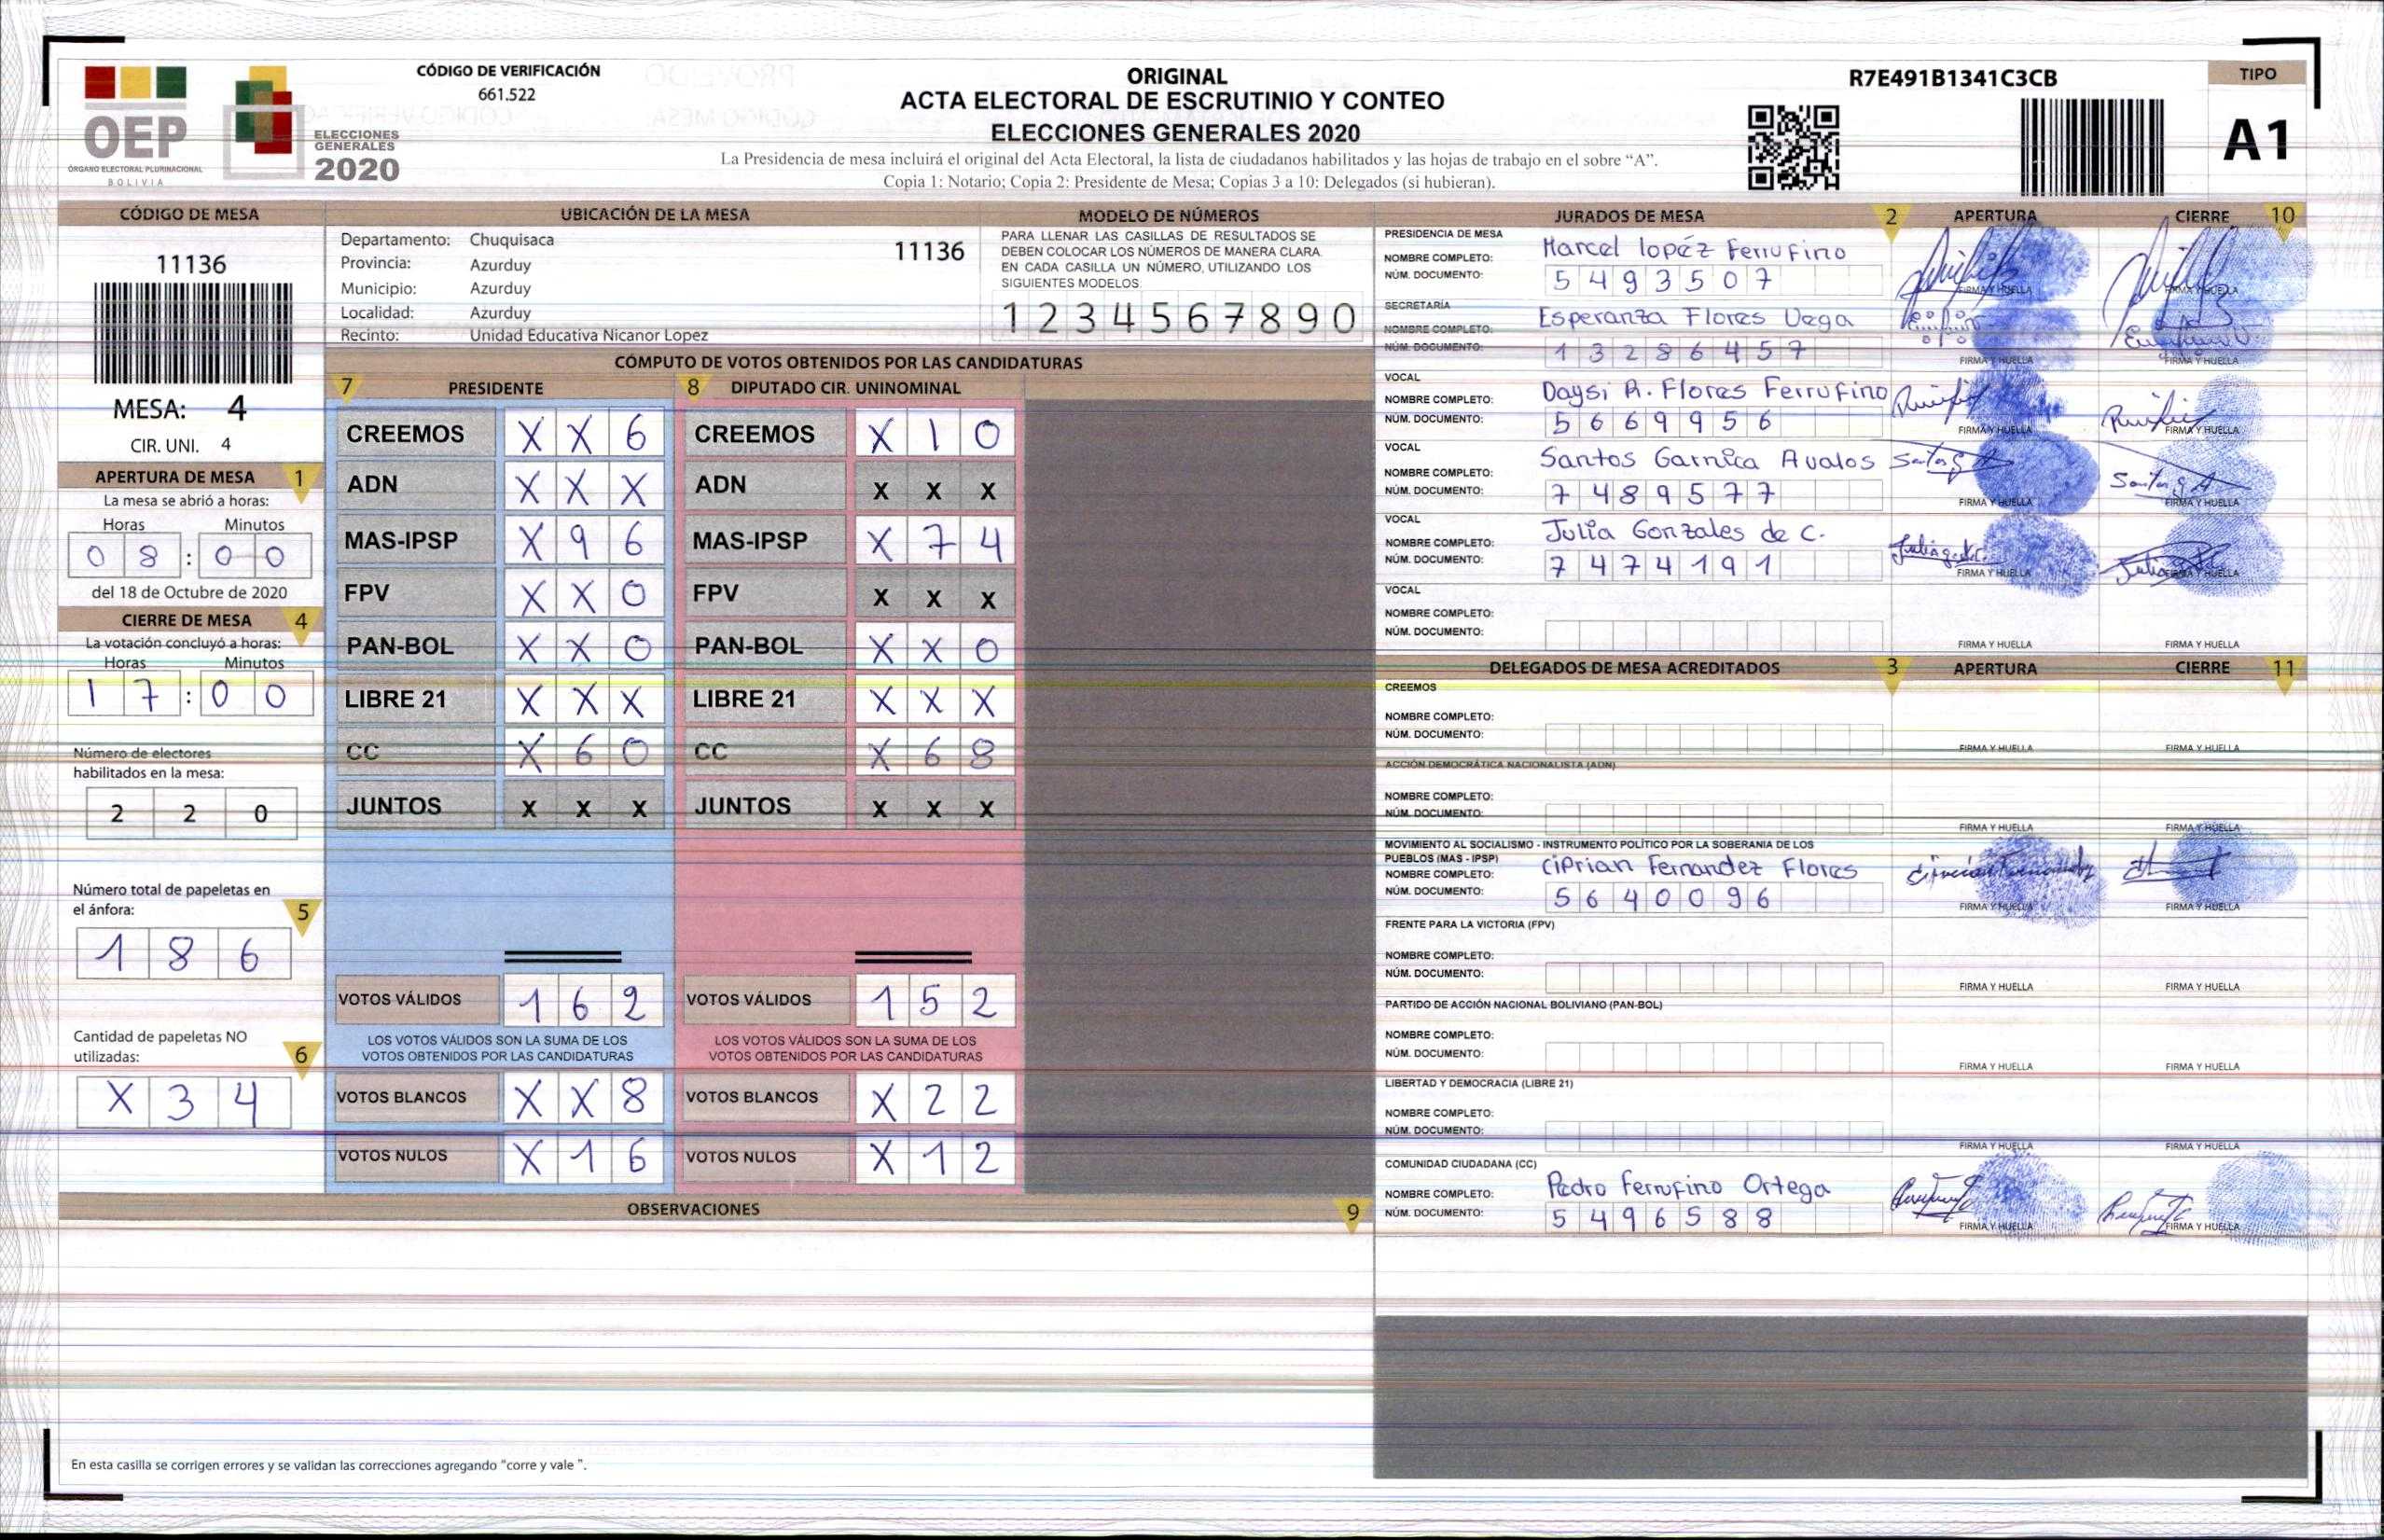 OEP
ÓRGANO ELECTORAL PLURINACIONAL
BOLIVIA
ELECCIONES
GENERALES
2020
CÓDIGO DE VERIFICACIÓN
661.522
ORIGINAL
ACTA ELECTORAL DE ESCRUTINIO Y CONTEO
ELECCIONES GENERALES 2020
La Presidencia de mesa incluirá el original del Acta Electoral, la lista de ciudadanos habilitados y las hojas de trabajo en el sobre “A”.
Copia 1: Notario; Copia 2: Presidente de Mesa; Copias 3 a 10: Delegados (si hubieran).
R7E491B1341C3CB
TIPO
A1
CÓDIGO DE MESA
11136
MESA: 4
CIR. UNI. 4
APERTURA DE MESA 1
La mesa se abrió a horas:
Horas Minutos
0 8 : 0 0
del 18 de Octubre de 2020
CIERRE DE MESA 4
La votación concluyó a horas:
Horas Minutos
1 7 : 0 0
Número de electores
habilitados en la mesa:
2 2 0
Número total de papeletas en
el ánfora: 5
1 8 6
Cantidad de papeletas NO
utilizadas: 6
X 3 4
UBICACIÓN DE LA MESA
Departamento: Chuquisaca 11136
Provincia: Azurduy
Municipio: Azurduy
Localidad: Azurduy
Recinto: Unidad Educativa Nicanor Lopez
MODELO DE NÚMEROS
PARA LLENAR LAS CASILLAS DE RESULTADOS SE
DEBEN COLOCAR LOS NÚMEROS DE MANERA CLARA.
EN CADA CASILLA UN NÚMERO, UTILIZANDO LOS
SIGUIENTES MODELOS
1 2 3 4 5 6 7 8 9 0
CÓMPUTO DE VOTOS OBTENIDOS POR LAS CANDIDATURAS
7 PRESIDENTE 8 DIPUTADO CIR. UNINOMINAL
CREEMOS X X 6 CREEMOS X 1 0
ADN X X X ADN X X X
MAS-IPSP X 9 6 MAS-IPSP X 7 4
FPV X X 0 FPV X X X
PAN-BOL X X 0 PAN-BOL X X 0
LIBRE 21 X X X LIBRE 21 X X X
CC X 6 0 CC X 6 8
JUNTOS X X X JUNTOS X X X
VOTOS VÁLIDOS 1 6 2 VOTOS VÁLIDOS 1 5 2
LOS VOTOS VÁLIDOS SON LA SUMA DE LOS LOS VOTOS VÁLIDOS SON LA SUMA DE LOS
VOTOS OBTENIDOS POR LAS CANDIDATURAS VOTOS OBTENIDOS POR LAS CANDIDATURAS
VOTOS BLANCOS X X 8 VOTOS BLANCOS X 2 2
VOTOS NULOS X 1 6 VOTOS NULOS X 1 2
OBSERVACIONES 9
En esta casilla se corrigen errores y se validan las correcciones agregando "corre y vale ".
JURADOS DE MESA 2 APERTURA CIERRE 10
PRESIDENCIA DE MESA
NOMBRE COMPLETO: Marcel lopéz Ferrufino
NÚM. DOCUMENTO: 5 4 9 3 5 0 7
FIRMA Y HUELLA FIRMA Y HUELLA
SECRETARÍA
NOMBRE COMPLETO: Esperanza Flores Vega
NÚM. DOCUMENTO: 1 3 2 8 6 4 5 7
FIRMA Y HUELLA FIRMA Y HUELLA
VOCAL
NOMBRE COMPLETO: Daysi A. Flores Ferrufino
NÚM. DOCUMENTO: 5 6 6 9 9 5 6
FIRMA Y HUELLA FIRMA Y HUELLA
VOCAL
NOMBRE COMPLETO: Santos Garnica Avalos
NÚM. DOCUMENTO: 7 4 8 9 5 7 7
FIRMA Y HUELLA FIRMA Y HUELLA
VOCAL
NOMBRE COMPLETO: Julia Gonzales de C.
NÚM. DOCUMENTO: 7 4 7 4 1 9 1
FIRMA Y HUELLA FIRMA Y HUELLA
VOCAL
NOMBRE COMPLETO:
NÚM. DOCUMENTO:
FIRMA Y HUELLA FIRMA Y HUELLA
DELEGADOS DE MESA ACREDITADOS 3 APERTURA CIERRE 11
CREEMOS
NOMBRE COMPLETO:
NÚM. DOCUMENTO:
FIRMA Y HUELLA FIRMA Y HUELLA
ACCIÓN DEMOCRÁTICA NACIONALISTA (ADN)
NOMBRE COMPLETO:
NÚM. DOCUMENTO:
FIRMA Y HUELLA FIRMA Y HUELLA
MOVIMIENTO AL SOCIALISMO - INSTRUMENTO POLÍTICO POR LA SOBERANIA DE LOS
PUEBLOS (MAS - IPSP)
NOMBRE COMPLETO: Ciprian Fernandez Flores
NÚM. DOCUMENTO: 5 6 4 0 0 9 6
FIRMA Y HUELLA FIRMA Y HUELLA
FRENTE PARA LA VICTORIA (FPV)
NOMBRE COMPLETO:
NÚM. DOCUMENTO:
FIRMA Y HUELLA FIRMA Y HUELLA
PARTIDO DE ACCIÓN NACIONAL BOLIVIANO (PAN-BOL)
NOMBRE COMPLETO:
NÚM. DOCUMENTO:
FIRMA Y HUELLA FIRMA Y HUELLA
LIBERTAD Y DEMOCRACIA (LIBRE 21)
NOMBRE COMPLETO:
NÚM. DOCUMENTO:
FIRMA Y HUELLA FIRMA Y HUELLA
COMUNIDAD CIUDADANA (CC)
NOMBRE COMPLETO: Pedro Ferrufino Ortega
NÚM. DOCUMENTO: 5 4 9 6 5 8 8
FIRMA Y HUELLA FIRMA Y HUELLA